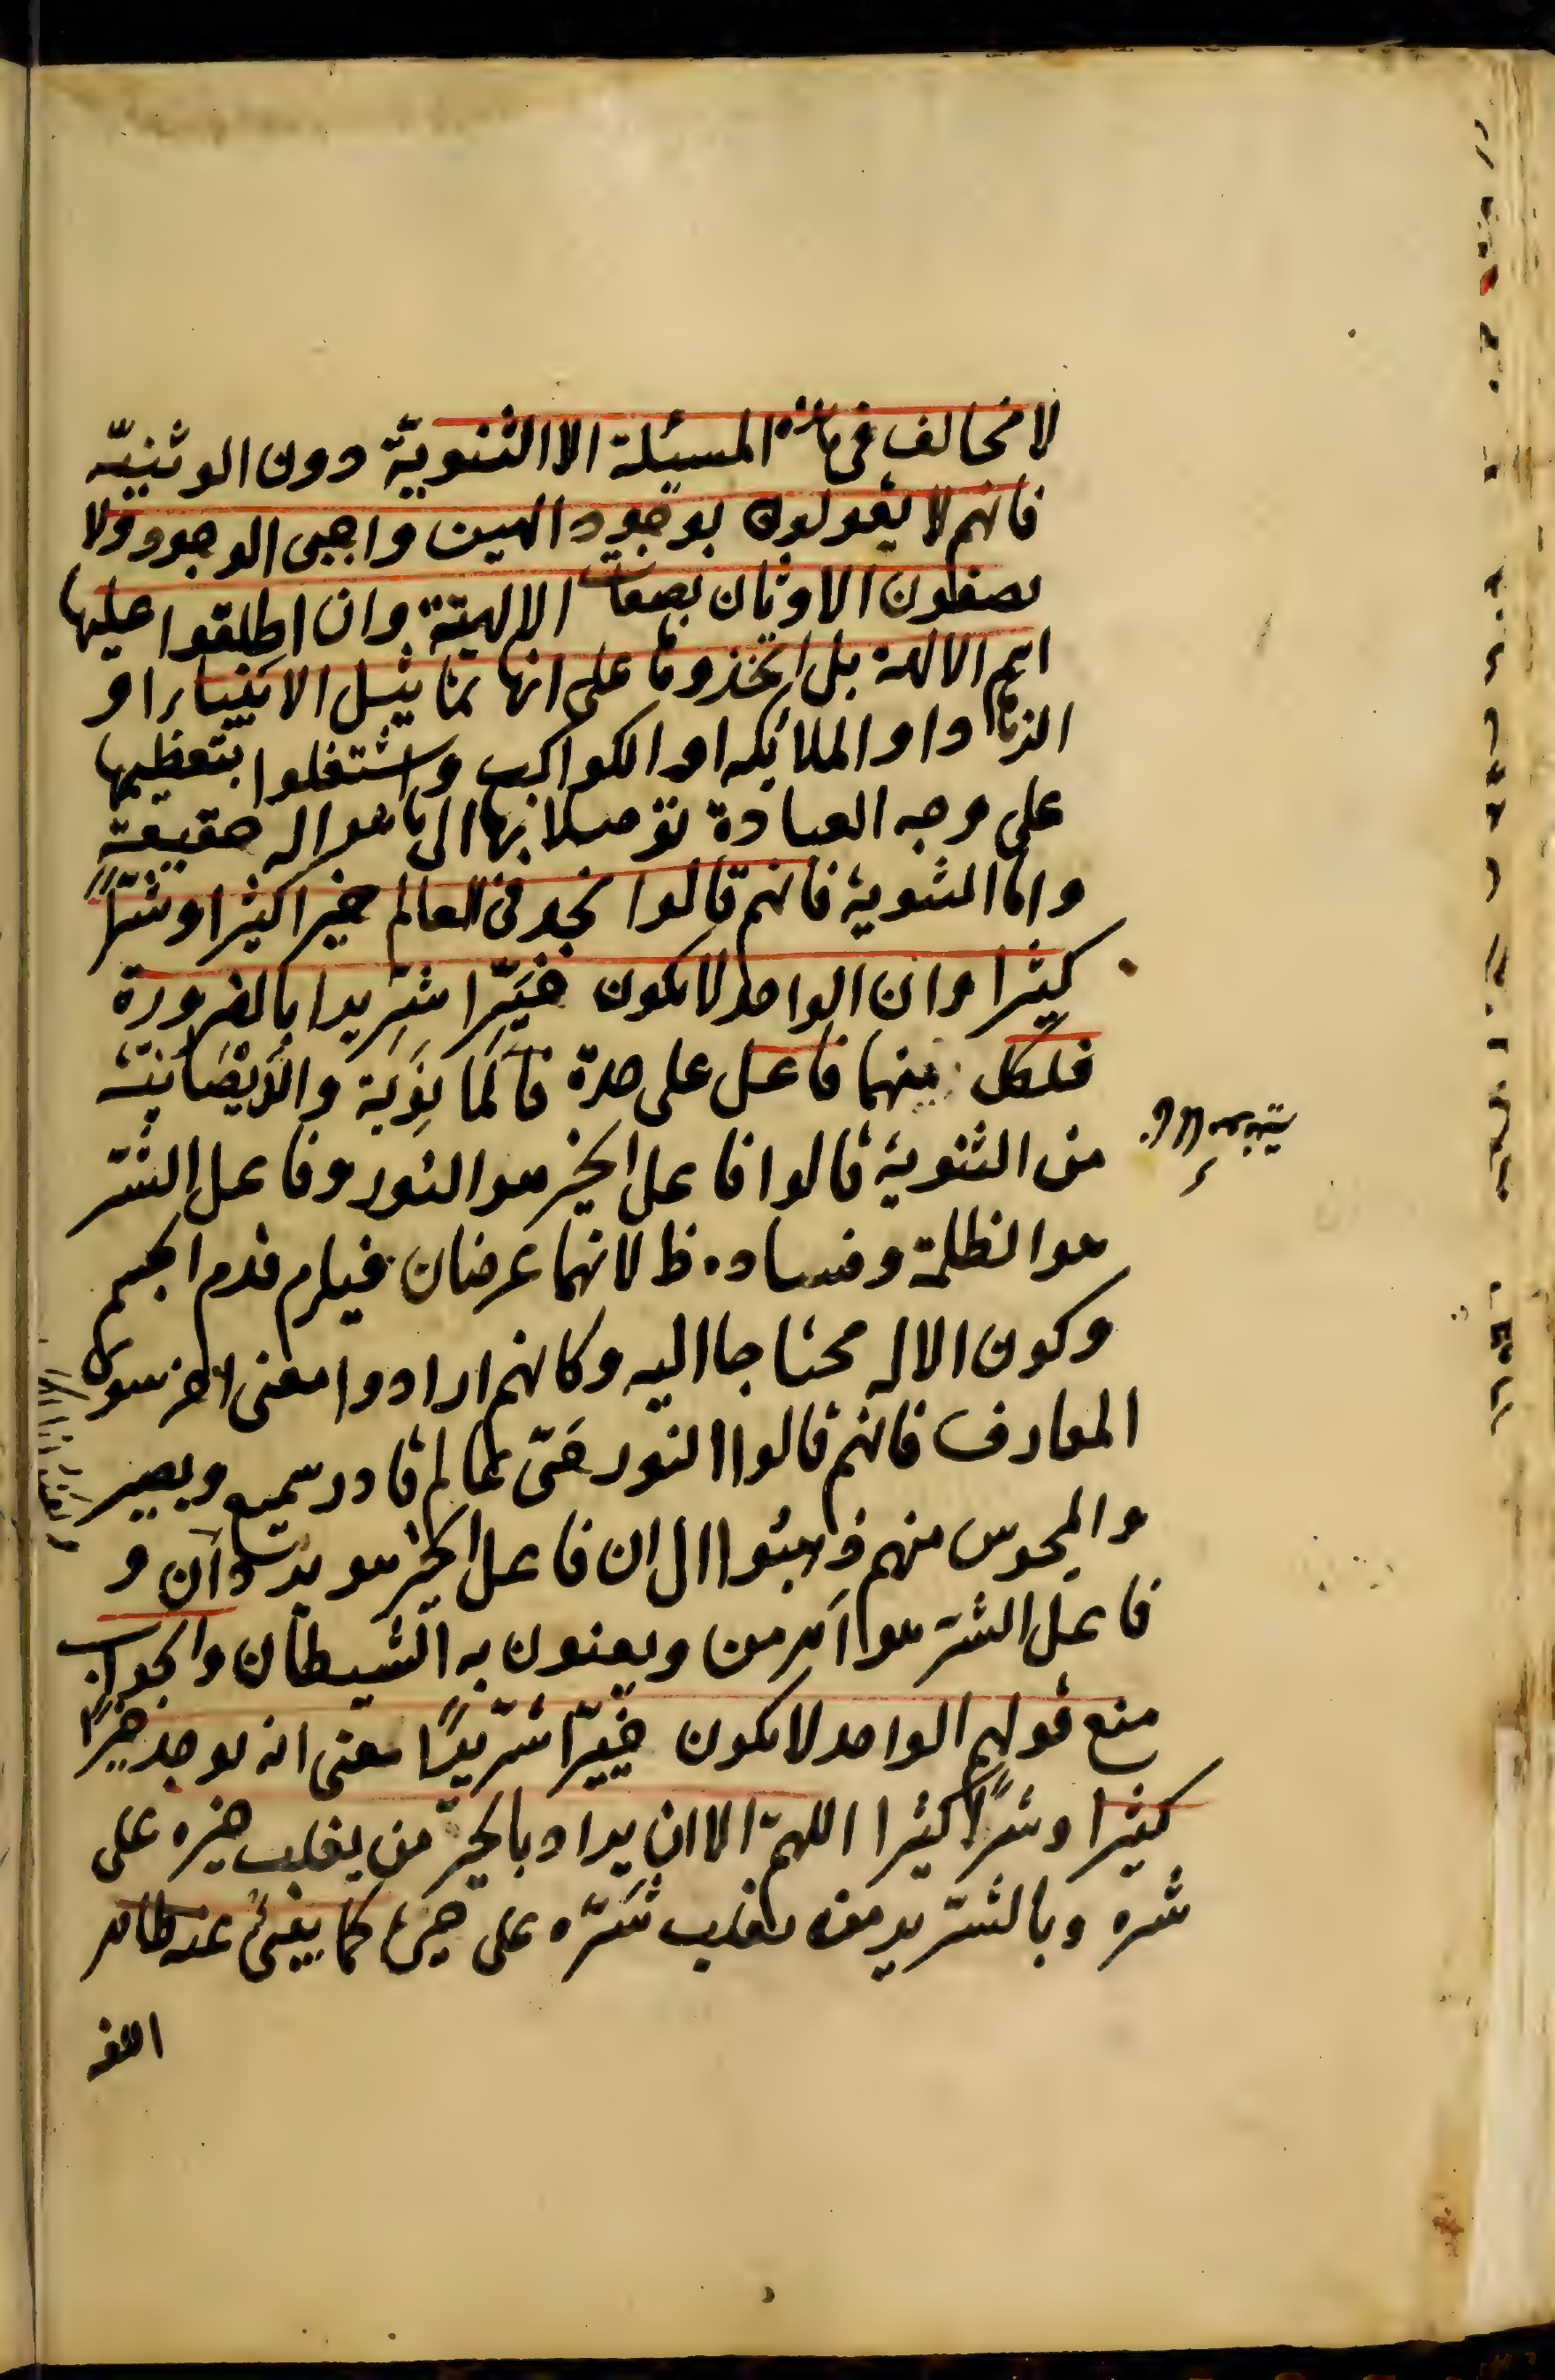 لا مخالف فى هذه المسئلة الا الثنوية دون الوثنيّه
فانهم لا يقولون بوجود الهين واجبى الوجود ولا
يصفون الاوثان بصفات الالهية وان اطلقوا عليها
اسم الالهه بل اتخذوها على انها تماثيل الانبياء او
الزهاد او الملائكه او الكواكب واشتغلوا بتعظيمها
على وجه العبادة توصلا بها الى ما هو اله حقيقة
واما الثنوية فانهم قالوا نجد فى العالم خيرا كثيرا وشرّاً
كثيرا وان الواحد لا يكون خيّرا شرّيرا بالضرورة
فلكل منهما فاعل على حدة فالمانوية والديصانية
من الثنوية قالوا فاعل الخير هو النور وفاعل الشرّ
هو الظلمة وفساده ظ لانهما عرضان فيلزم قدم الجسم
وكون الاله محتاجا اليه وكانهم ارادوا معنى اخر سوى
المتعارف فانهم قالوا النور حىّ عالم قادر سميع وبصير
والمجوس منهم ذهبوا الى ان فاعل الخير هو يزدان و
فاعل الشرّ هو اهرمن ويعنون به الشيطان والجواب
منع قولهم الواحد لا يكون خيّرا شرّيرًا بمعنى انه يوجد خيرًا
كثيرا وشرًا كثيرا اللهمّ الا ان يراد بالخيّر من يغلب خيره على
شره وبالشرّير من يغلب شرّه على خيره كما ينبئ عنه ظاهر
اللغه